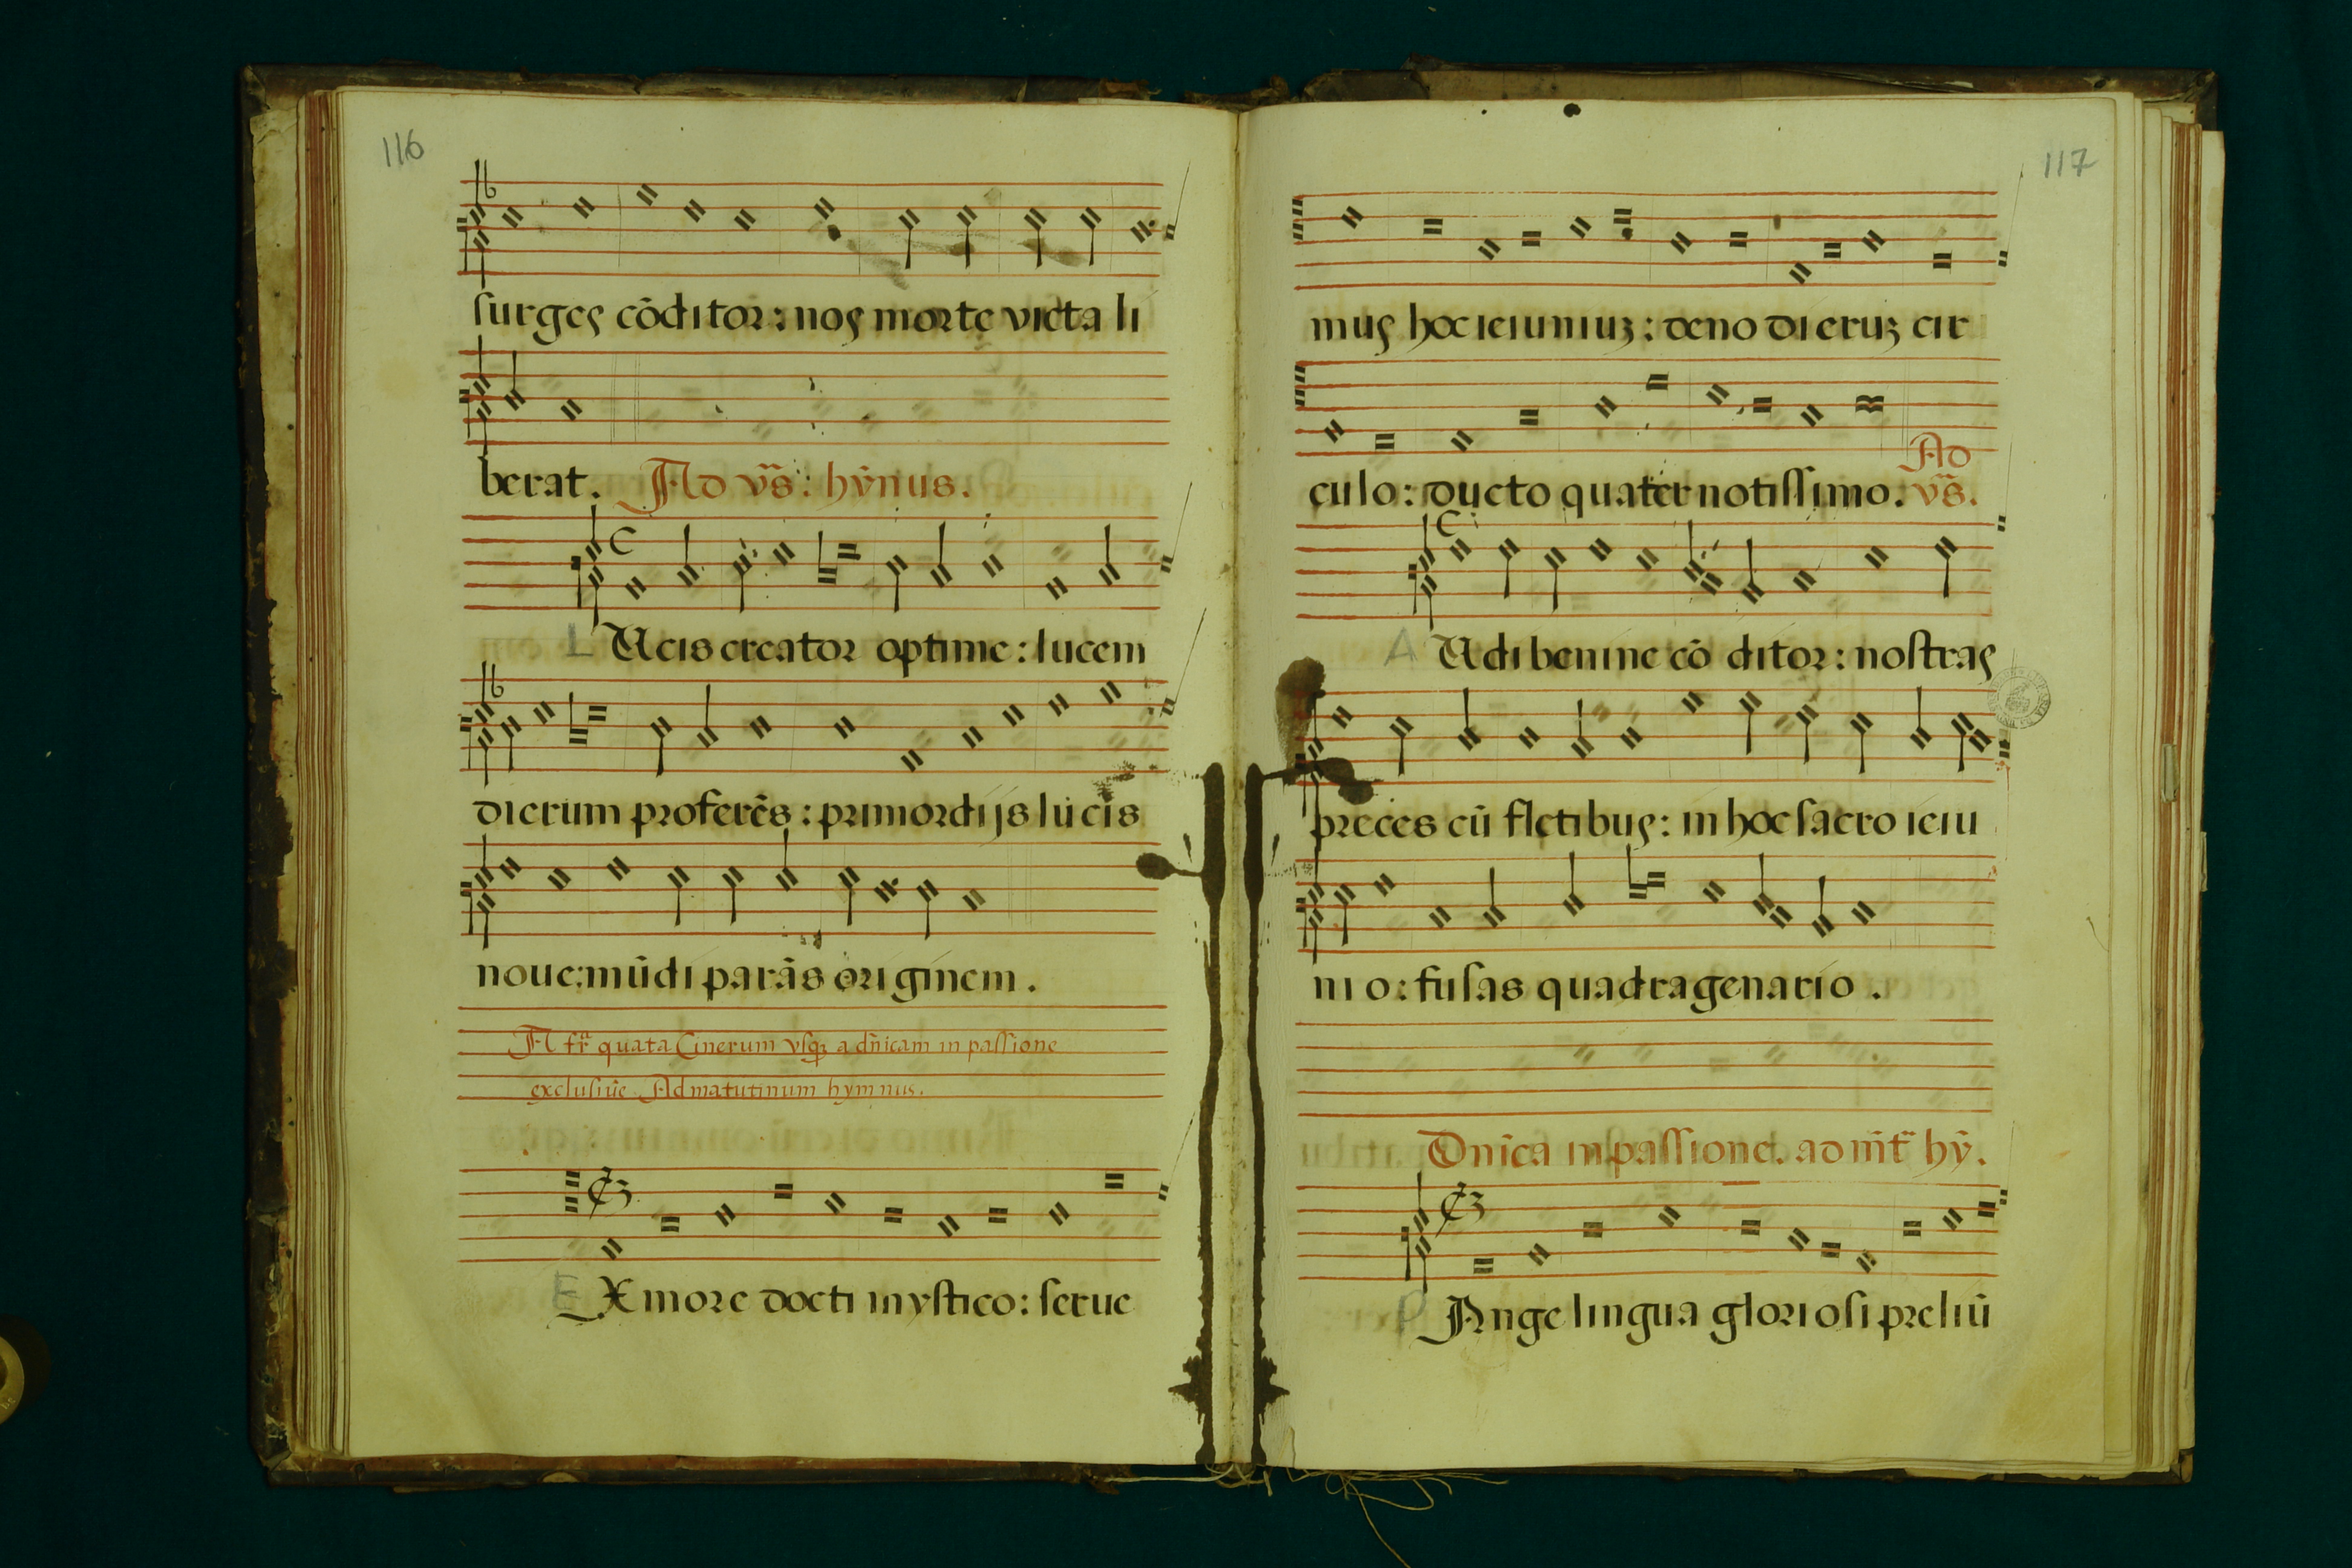 116
surges cōditor: nos morte victa li
berat. Ad vs̃: hỹnus.
L Ucis creator optime: lucem
dierum proferēs: primordijs lucis
noue: mūdi parās originem.
A fr̃ª quata Cinerum vsq; a dñicam in passione
exclusiue. Ad matutinum hymnus.
E X more docti mystico: serue
117
mus hoc ieiuniuz: deno dieruz cir
culo: ducto quater notissimo. Ad vs̃.
A Udi benine cō ditor: nostras
preces cū fletibus: in hoc sacro ieiu
nio: fusas quadragenario.
Dnĩca in passione. ad mt̃ hỹ.
P Ange lingua gloriosi preliū